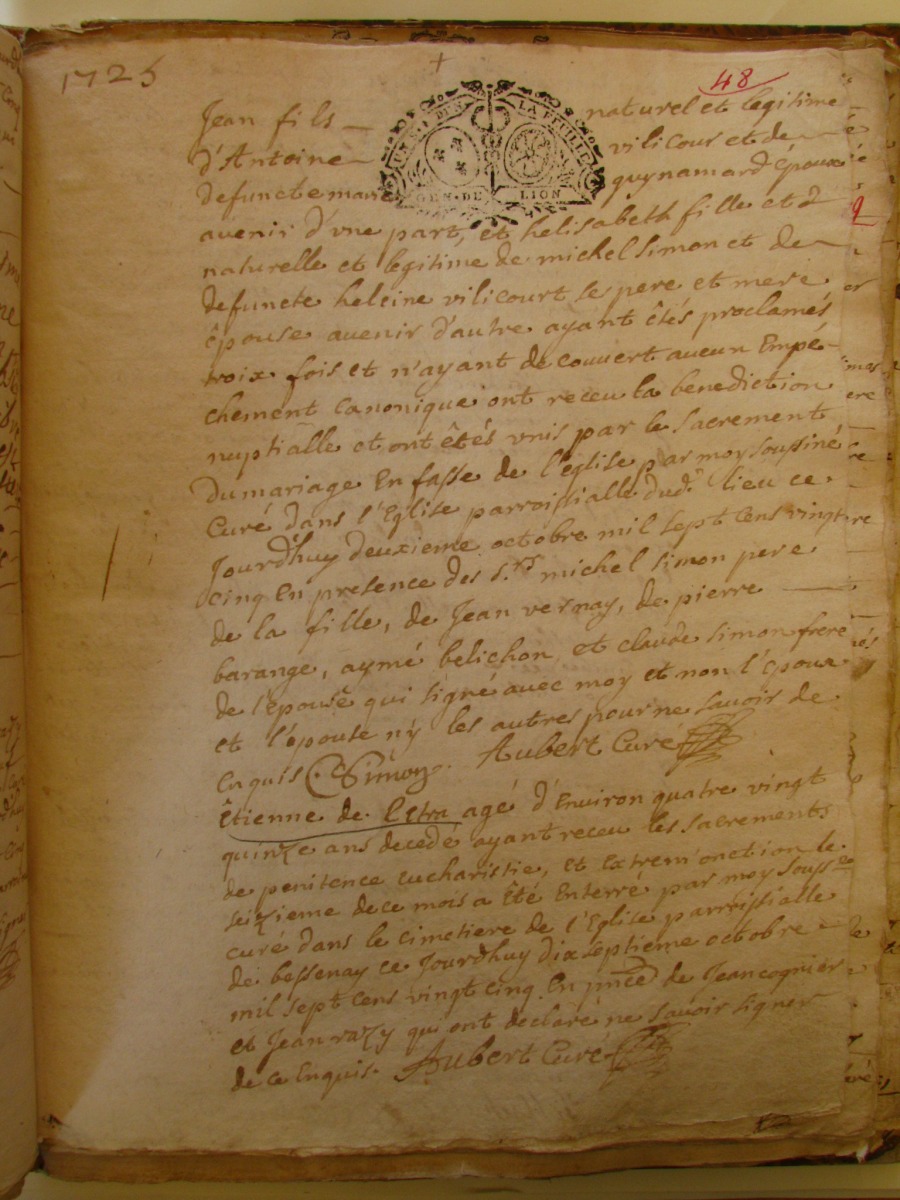 1725
48
UN S. DUN LA FEUILLE
GEN. DE LION
Jean fils naturel et legitime
d'Antoine vilicour et de
defuncte marie guynamard Époux
avenir d'vne part, et helisabeth fille et d
naturelle et legitime de michel simon et de
defuncte heleine vilicourt se pere et mere
êpouse avenir d'autre ayant êtés proclamés
troix fois et n'ayant decouvert aucun Empé-
chement canonique ont receu la benediction
nuptialle et ont êtés vnis par le sacrement
du mariage En fasse de l'église par moy soussiné
Curé dans l'Eglise parroissialle dud.t lieu ce
Jourd'huy deuxieme octobre mil sept cens vingt
cinq En presence des s.rs michel simon pere
de la fille, de Jean vernay, de pierre
barange, aymé belichon, et claude simon frere
de l'epouse qui signé avec moy et non l'époux
et l'epouse ny les autres pour ne savoir de
Enquis C Simon. Aubert Curé
Êtienne de letra agé d'Environ quatre vingt
quinze ans decedé ayant receu les sacrements
de penitence eucharistie, et extrem'onction le
seizieme de ce mois a êté Enterré par moy souss.né
curé dans le cimetiere de l'Eglise parroissialle
de bessenay ce Jourd'huy dix septieme octobre
mil sept cens vingt cinq En pnce de Jean cognier
et Jean razy qui ont declaré ne savoir signer
de ce Enquis. Aubert Curé